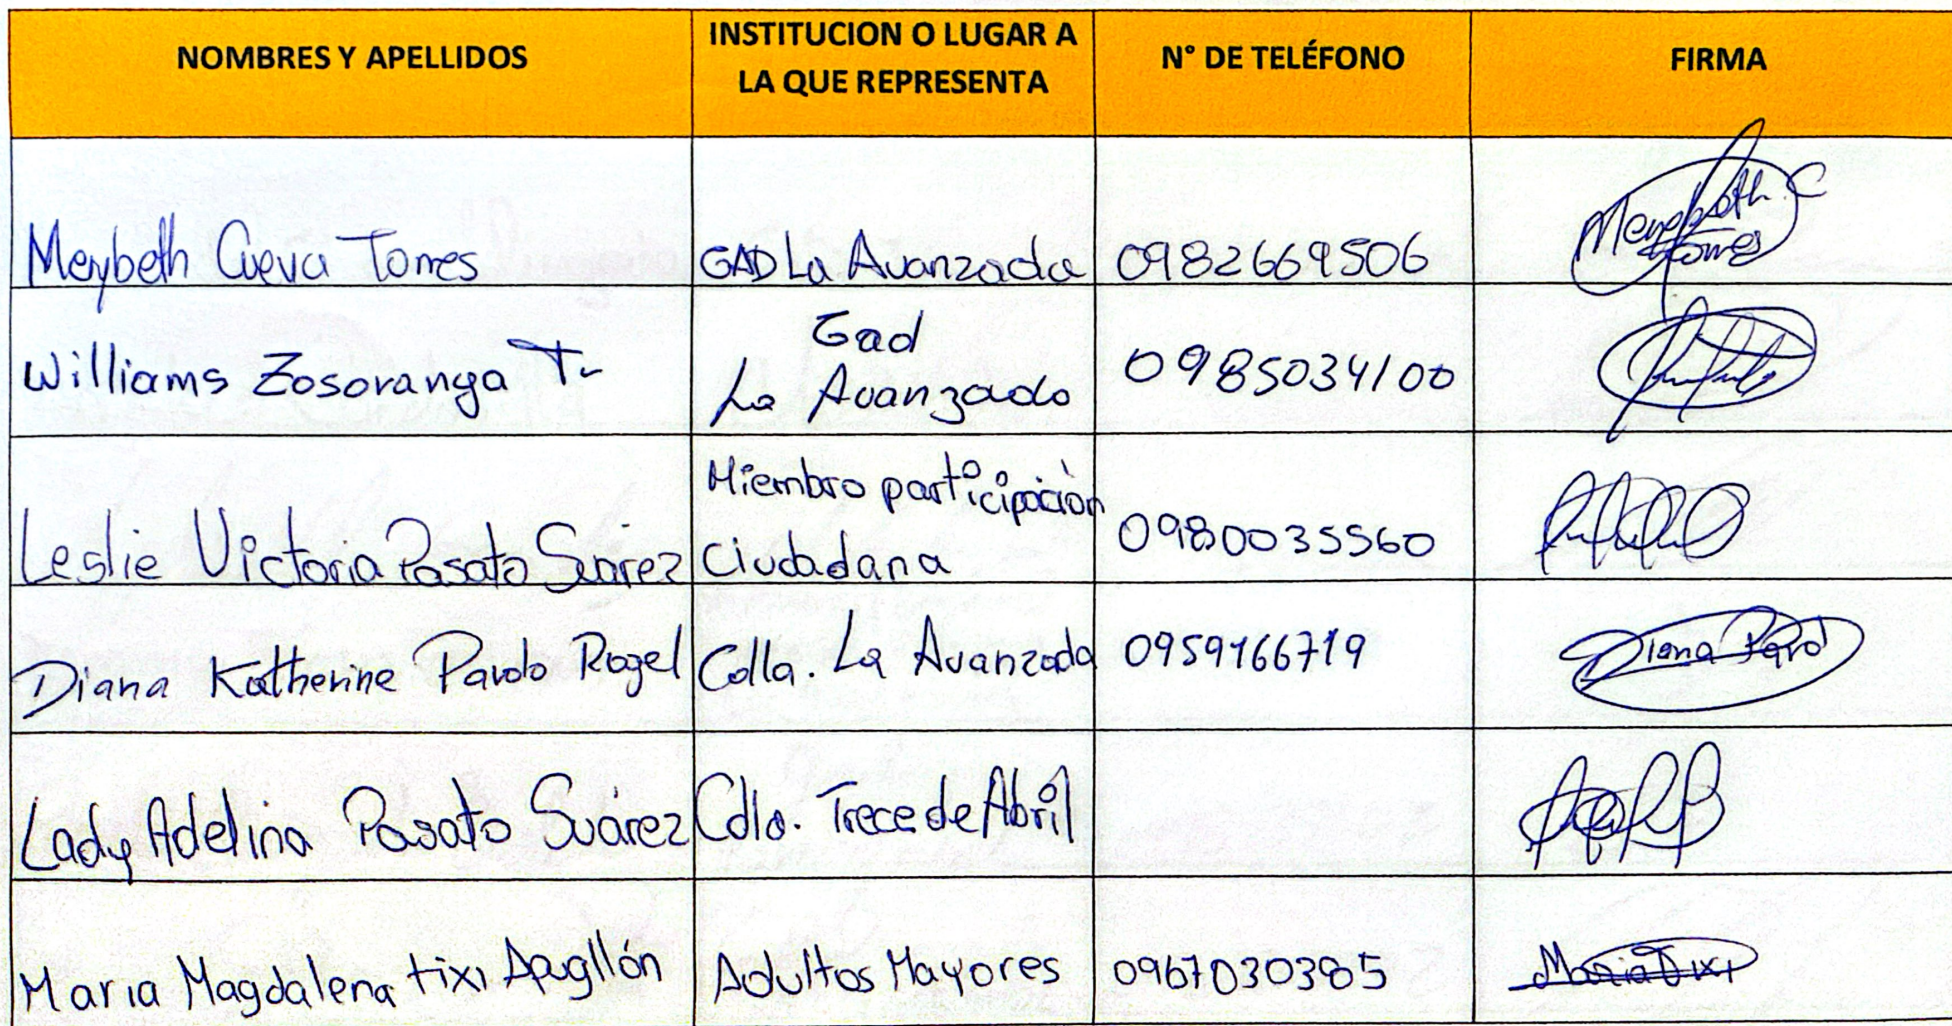 NOMBRES Y APELLIDOS
INSTITUCION O LUGAR A
LA QUE REPRESENTA
N° DE TELÉFONO
FIRMA
Meybeth Cueva Torres
GAD La Avanzada
0982669506
Meybeth C
Torres
Williams Zosoranga T.
Gad
La Avanzada
0985034100
Leslie Victoria Pasato Suárez
Miembro participación
Ciudadana
0980035560
Diana Katherine Pardo Rogel
Cdla. La Avanzada
0959166719
Diana Pard
Lady Adelina Pasato Suárez
Cdla. Trece de Abril
Maria Magdalena tixi
Adultos Mayores
0967030385
Maria Tixi